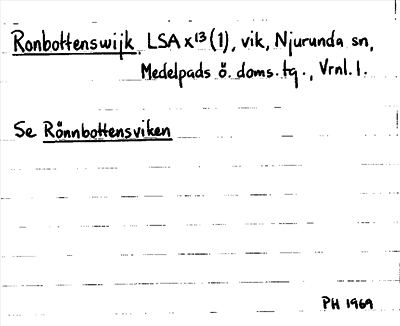 Ronbottenswijk, LSA x¹³ (1), vik, Njurunda sn,
Medelpads ö. doms. tg., Vrnl. l.
Se Rönnbottensviken
PH 1969